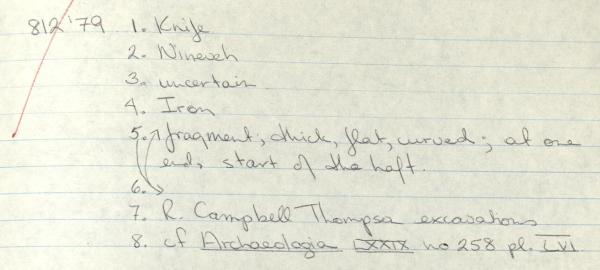 812 '79 1. Knife
2. Nineveh
3. uncertain
4. Iron
5. fragment; thick, flat, curved; at one
end, start of the haft.
6.
7. R. Campbell Thompson excavations
8. cf Archaeologia LXXIX no 258 pl. LVI